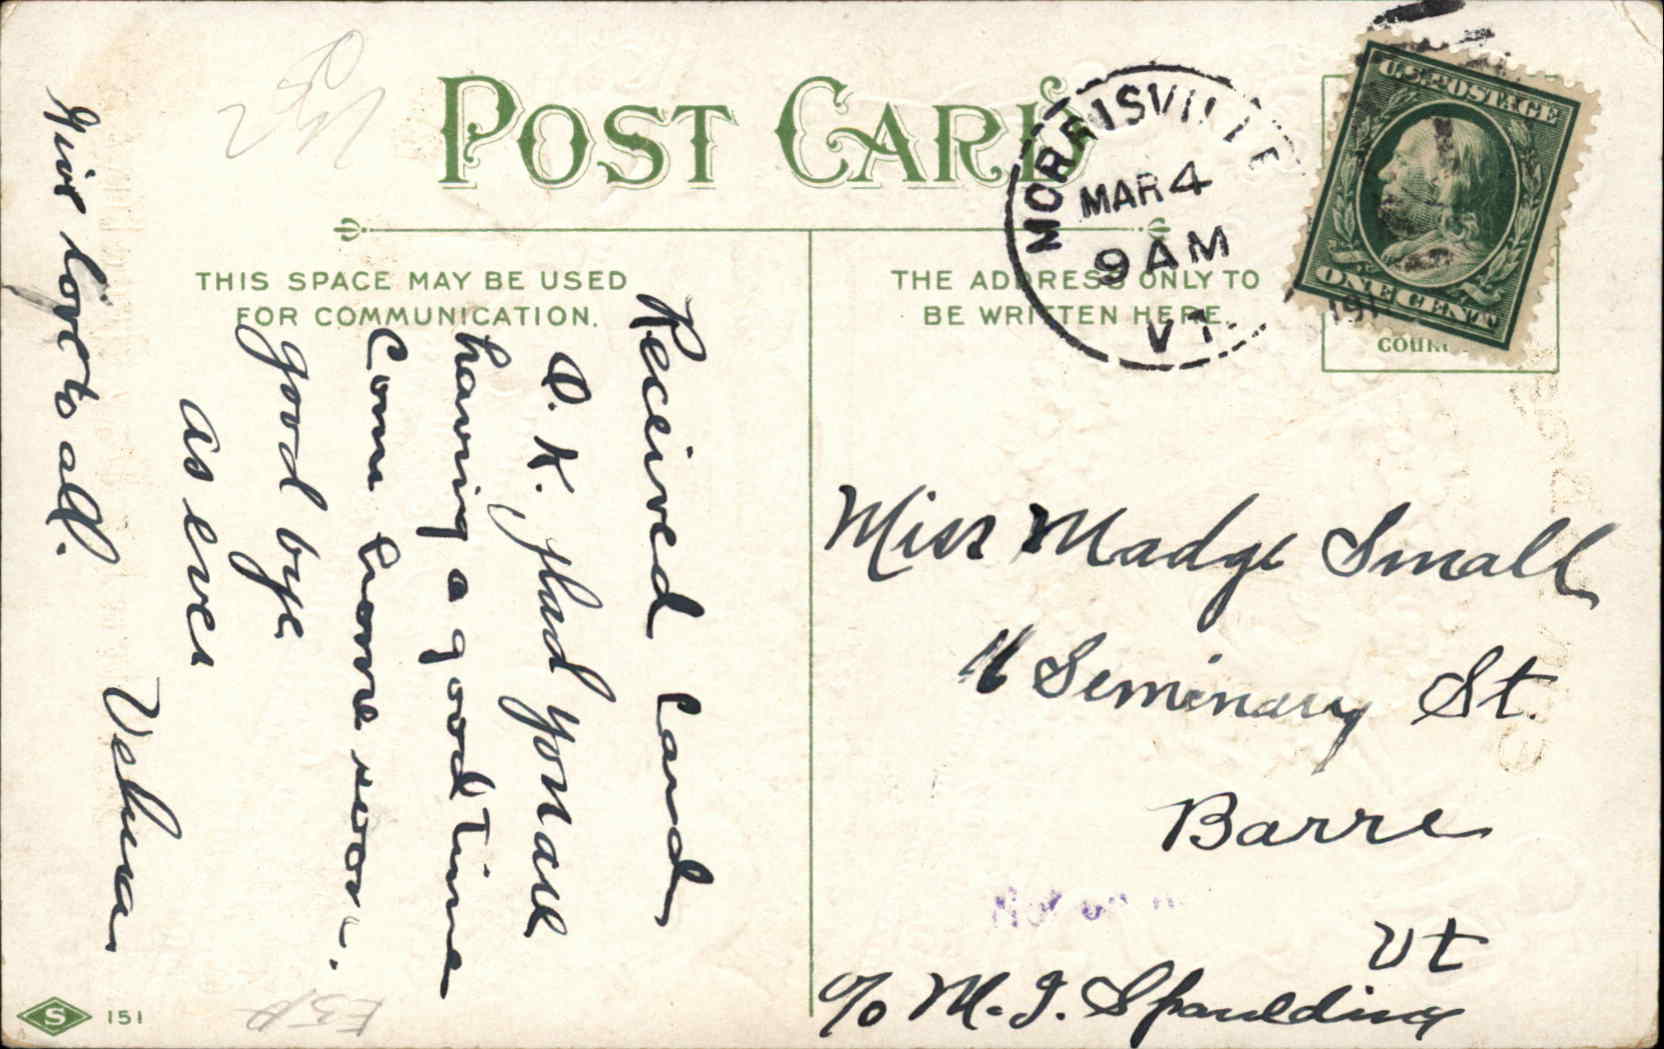 POST CARD
THIS SPACE MAY BE USED
FOR COMMUNICATION.
THE ADDRESS ONLY TO
BE WRITTEN HERE.
MORRISVILLE
MAR 4
9 AM
VT.
191
U.S. POSTAGE
ONE CENT
Received Card
O. K. glad you are
having a good time
Come home soon.
good bye
as ever
Velma
Give love to all.
Miss Madge Small
16 Seminary St.
Barre
Vt
c/o M. J. Spaulding
S 151